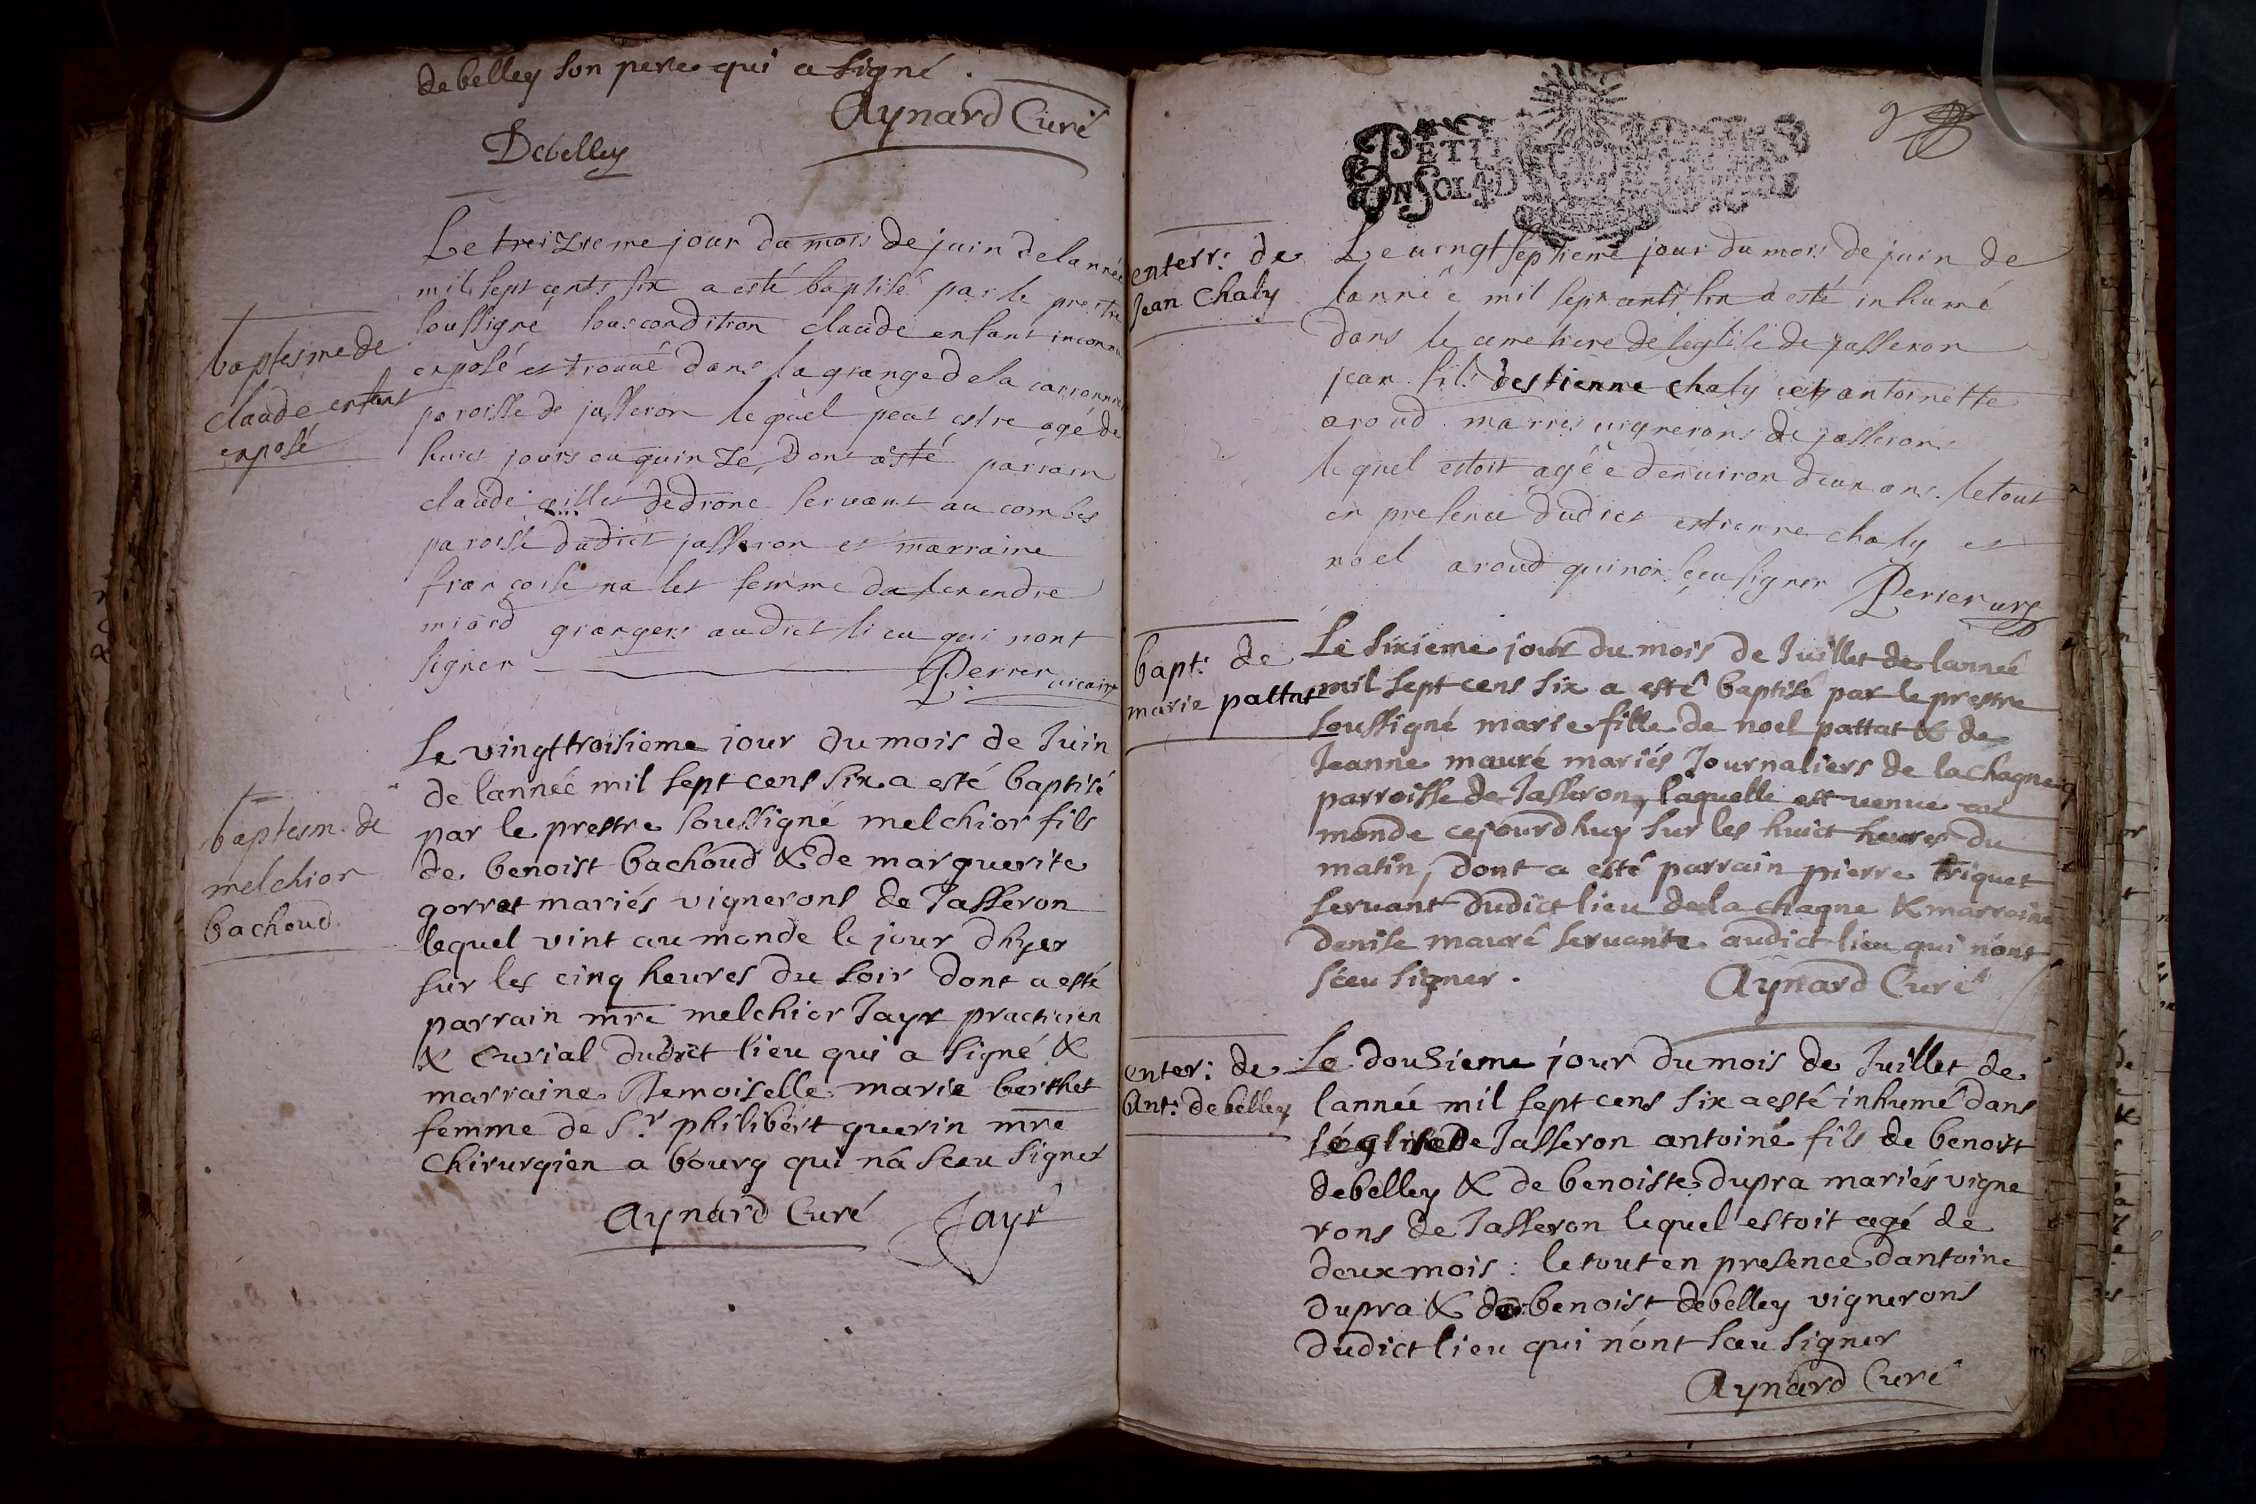 debelley son pere qui a signé.
Aynard Curé
Debelley
Le treizieme jour du mois de juin de lannée
mil sept cents six a esté baptisé par le prestre
soussigné sous condition claude enfant inconnu
exposé et trouvé dans la grange de la
paroisse de jasseron lequel peut estre agé de
huict jours ou quinze, dont a esté parrain
claude servant au combes
paroisse dudict jasseron et marraine
françoise femme
grangers audict lieu qui nont
signer Perrier vicaire
baptesme de
claude enfant
exposé
Le vingt troisieme jour du mois de Juin
de lannée mil sept cens six a esté baptisé
par le prestre soussigné melchior fils
de benoist bachoud & de marguerite
gorret mariés vignerons de Jasseron
lequel vint au monde le jour dhyer
sur les cinq heures du soir dont a esté
parrain mre melchior Jayr practicien
& curial dudict lieu qui a signé &
marraine Demoiselle marie berthet
femme de Sr philibert guerin mre
chirurgien a bourg qui n'a sceu signer
Aynard Curé Jayr
baptesm. de
melchior
bachoud.
PETIT
EN SOLS
enterr: de
Jean Chaly
Le vingt septieme jour du mois de juin de
lannéé mil sept cents six a esté inhumé
dans le cimetiere de leglise de jasseron
jean fils destienne chaly et antoinette
aroud mariés vignerons de jasseron
lequel estoit agée denviron deux ans. le tout
en presence dudict estienne chaly et
noel aroud qui non sceu signer Perrier
bapt: de
marie pattat
Le sixieme jour du mois de Juillet de lanneé
mil sept cens six a esté baptisé par le prestre
soussigné marie fille de noel pattat & de
Jeanne mauré mariés Journaliers de la chagne
parroisse de Jasseron, laquelle est venue au
monde cejourdhuy sur les huict heures du
matin, dont a esté parrain pierre triquet
servant dudict lieu de la chagne & marraine
denise mauré servante audict lieu qui n'ont
sceu signer.
Aynard Curé
enter: de
Ant: debelley
Le douzieme jour du mois de Juillet de
lannée mil sept cens six a esté inhumé dans
l'église de Jasseron antoine fils de benoist
debelley & de benoiste dupra mariés vigne
rons de Jasseron lequel estoit agé de
deux mois: le tout en presence dantoine
dupra & de benoist debelley vignerons
dudict lieu qui n'ont sceu signer
Aynard Curé